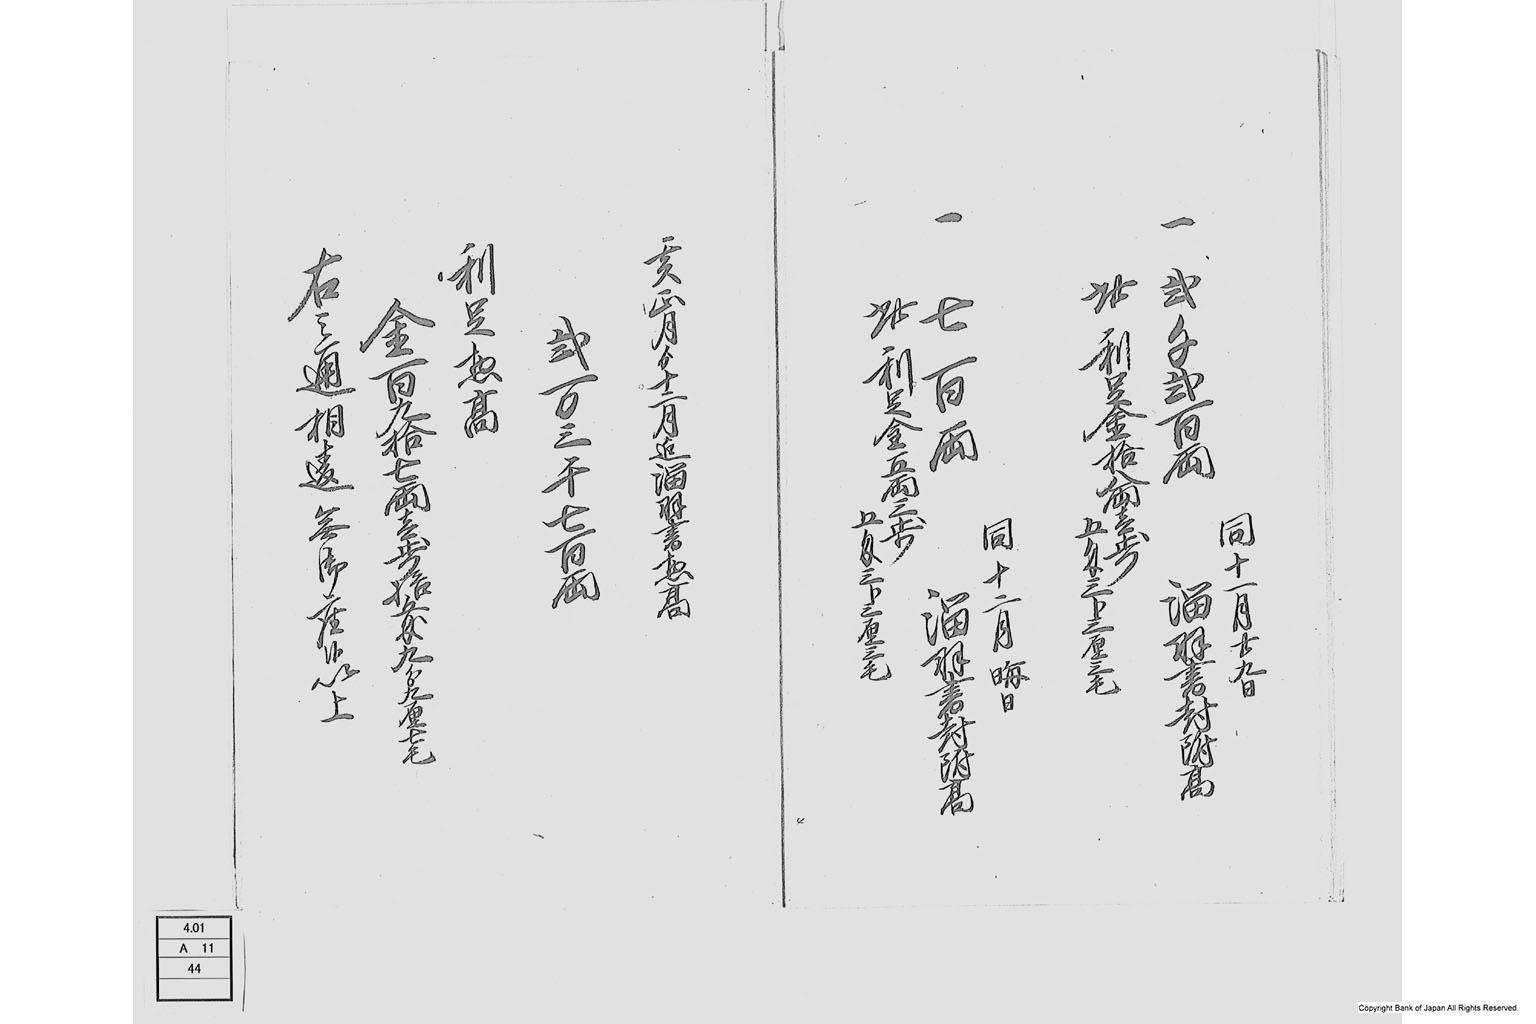 同十一月廿九日
一 弐千弐百両 溜羽書封附高
此利足金拾八両壱歩
五匁三分三厘三毛
同十二月晦日
一 七百両 溜羽書封附高
此利足金五両三歩
五匁三分三厘三毛
亥正月ゟ十二月迄溜羽書惣高
弐万三千七百両
利足惣高
金百九拾七両壱歩拾五匁九分九厘七毛
右之通相違無御座候以上
4.01
A 11
44
Copyright Bank of Japan All Rights Reserved.